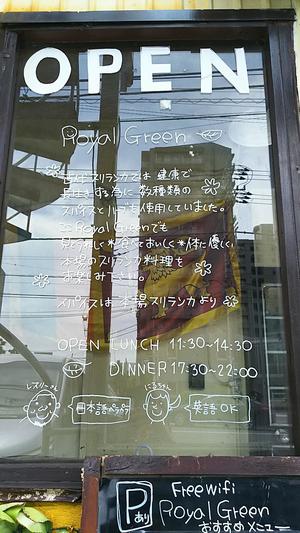 OPEN
Royal Green
古代スリランカでは 健康で
長生きする為に 数種類の
スパイスとハーブを使用していました。
Royal Greenでも
見てうれしい*食べておいしく*体に優しい
本場のスリランカ料理を
お楽しみ下さい。
スパイスは 本場スリランカより
OPEN LUNCH 11:30~14:30
DINNER 17:30~22:00
レスリーさん
日本語ペラペラ
にるちゃん
英語 OK
P
あり
Free wifi
Royal Green
おすすめメニュー